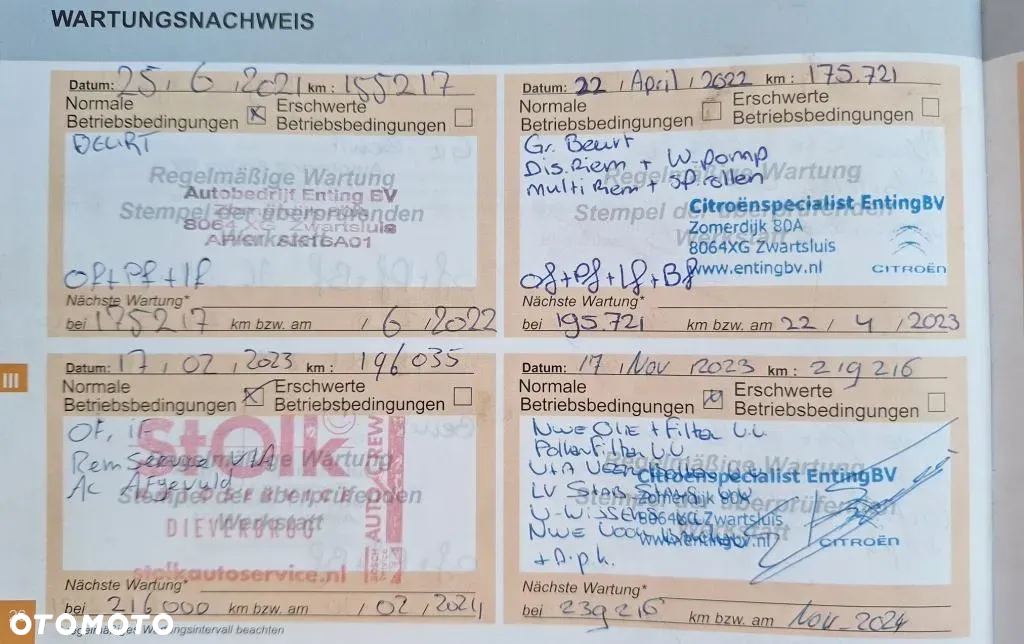 WARTUNGSNACHWEIS
Datum: 25 / 6 / 2021 km: 155217
Normale Betriebsbedingungen ☒ Erschwerte Betriebsbedingungen ☐
BEURT
Regelmäßige Wartung
Autobedrijf Enting BV
Stempel der überprüfenden
8064 XG Zwartsluis
Werkstatt
OF+PF+IF
Nächste Wartung*
bei 175217 km bzw. am / 6 / 2022
Datum: 22 / April / 2022 km: 175.721
Normale Betriebsbedingungen ☐ Erschwerte Betriebsbedingungen ☐
Gr. Beurt
Dis. Riem + W. Pomp
Multi Riem + SP. rollen
Regelmäßige Wartung
Citroënspecialist Enting BV
Stempel der überprüfenden
Zomerdijk 80A
Werkstatt
8064XG Zwartsluis
www.entingbv.nl
CITROËN
OF+PF+IF+BF
Nächste Wartung*
bei 195.721 km bzw. am 22 / 4 / 2023
III
Datum: 17 / 02 / 2023 km: 196035
Normale Betriebsbedingungen ☒ Erschwerte Betriebsbedingungen ☐
OF, IF
stolk
Rem Service
Regelmäßige Wartung
Ac Afgevuld
Stempel der überprüfenden
DIEVERBRUG
Werkstatt
stolkautoservice.nl
Nächste Wartung*
bei 216000 km bzw. am / 02 / 2024
Datum: 17 / Nov / 2023 km: 219216
Normale Betriebsbedingungen ☒ Erschwerte Betriebsbedingungen ☐
Nwe Olie + Filter V.V.
Pollen Filter V.V.
Regelmäßige Wartung
Citroënspecialist Enting BV
Stempel der überprüfenden
Zomerdijk 80A
8064XG Zwartsluis
Werkstatt
www.entingbv.nl
CITROËN
+ A.p.k.
Nächste Wartung*
bei 239216 km bzw. am Nov - 2024
OTOMOTO
Regelmäßiges Wartungsintervall beachten